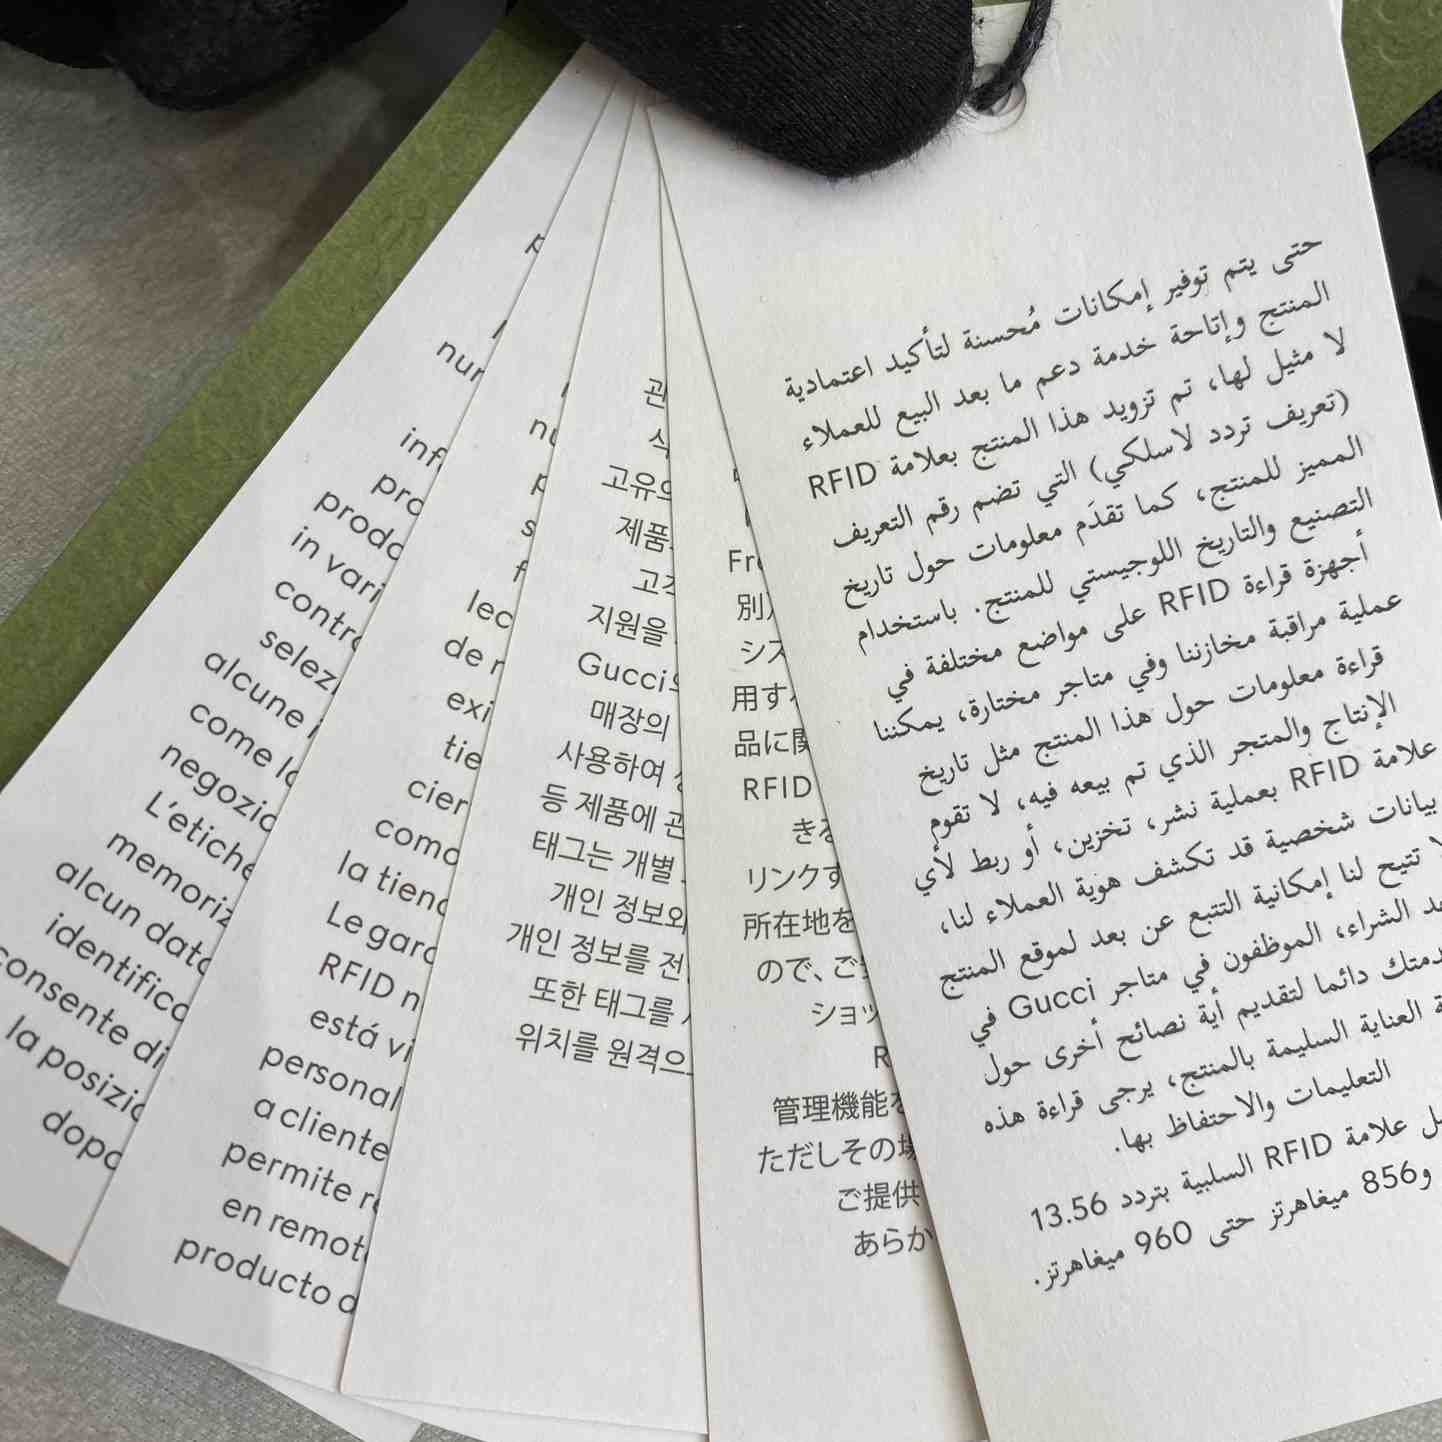 nur
inf
pro
prodo
in vari
contro
selez
alcune i
come lo
negozio
L'etiche
memoriz
alcun dato
identifico
consente di
la posizio
dopo
nu
p
s
f
lec
de r
exi
tie
cier
como
la tiend
Le gard
RFID n
está vi
personal
a cliente
permite re
en remoto
producto d
관
식
고유의
제품
고객
지원을
Gucci의
매장의
사용하여
등 제품에 관
태그는 개별
개인 정보와
개인 정보를 전
또한 태그를
위치를 원격으
Fre
別
シス
用す
品に関
RFID
きる
リンクす
所在地を
ので、ご
ショッ
R
管理機能を
ただしその場
ご提供
あらか
حتى يتم توفير إمكانات مُحسنة لتأكيد اعتمادية
المنتج وإتاحة خدمة دعم ما بعد البيع للعملاء
لا مثيل لها، تم تزويد هذا المنتج بعلامة RFID
(تعريف تردد لاسلكي) التي تضم رقم التعريف
المميز للمنتج، كما تقدَم معلومات حول تاريخ
التصنيع والتاريخ اللوجيستي للمنتج. باستخدام
أجهزة قراءة RFID على مواضع مختلفة في
عملية مراقبة مخازننا وفي متاجر مختارة، يمكننا
قراءة معلومات حول هذا المنتج مثل تاريخ
الإنتاج والمتجر الذي تم بيعه فيه، لا تقوم
علامة RFID بعملية نشر، تخزين، أو ربط لأي
بيانات شخصية قد تكشف هوية العملاء لنا،
تتيح لنا إمكانية التتبع عن بعد لموقع المنتج
الشراء، الموظفون في متاجر Gucci في
دائما لتقديم أية نصائح أخرى حول
العناية السليمة بالمنتج، يرجى قراءة هذه
التعليمات والاحتفاظ بها.
علامة RFID السلبية بتردد 13.56
و856 ميغاهرتز حتى 960 ميغاهرتز.